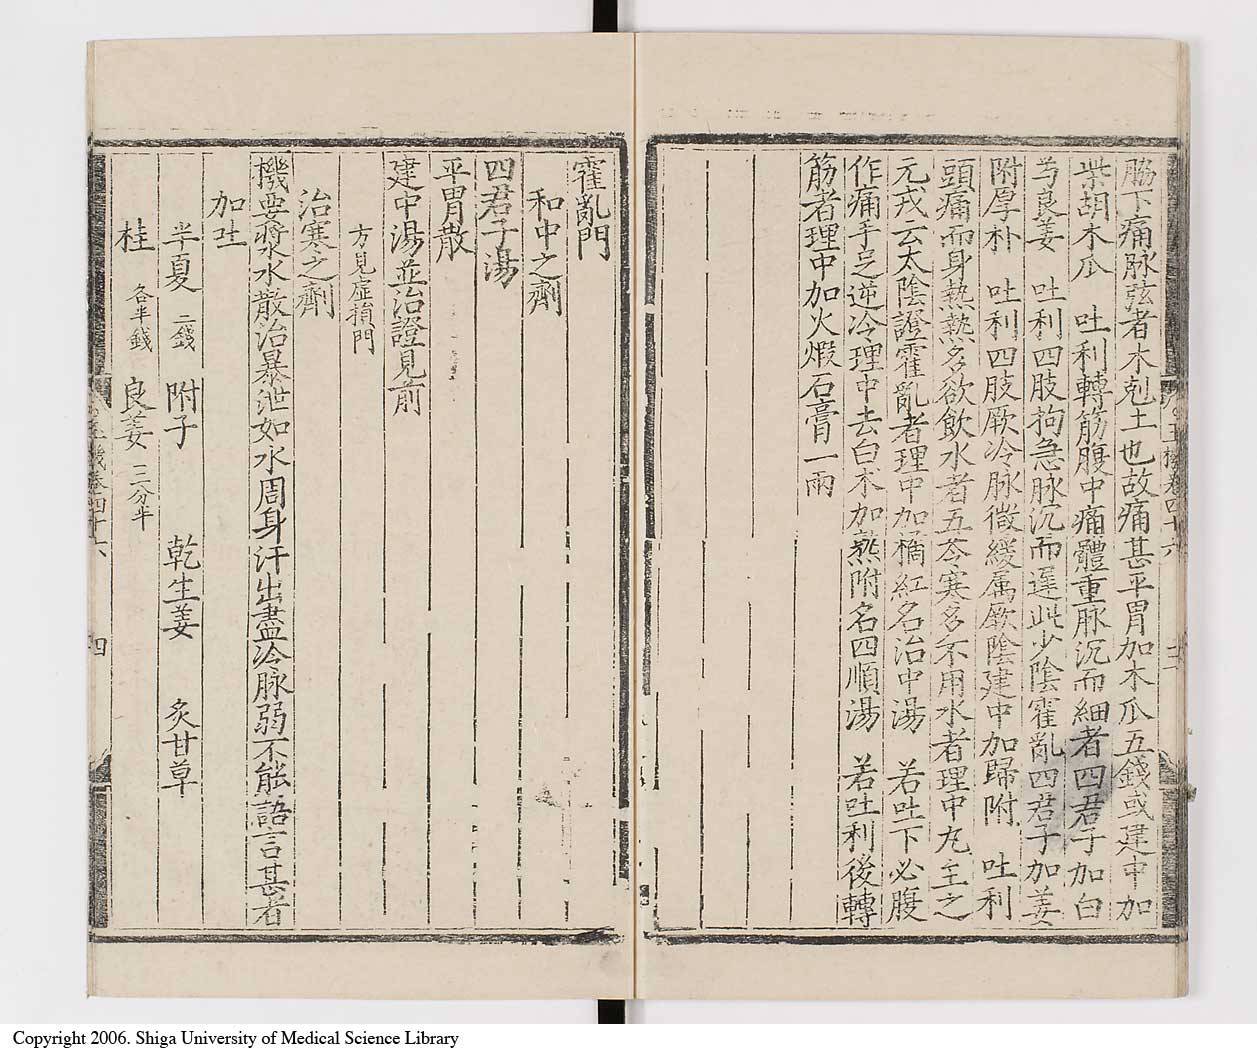 脇下痛脉弦者木剋土也故痛甚平胃加木瓜五錢或建中加
柴胡木瓜　吐利轉筋腹中痛體重脉沉而細者四君子加白
芍良姜　吐利四肢拘急脉沉而遲此少陰霍亂四君子加姜
附厚朴　吐利四肢厥冷脉微緩属厥陰建中加歸附　吐利
頭痛而身熱熱多欲飲水者五苓寒多不用水者理中丸主之
元戎云太陰證霍亂者理中加橘紅名治中湯　若吐下必腹
作痛手足逆冷理中去白术加熟附名四順湯　若吐利後轉
筋者理中加火煅石膏一兩
霍亂門
和中之劑
四君子湯
平胃散
建中湯並治證見前
方見虛損門
治寒之劑
機要漿水散治暴泄如水周身汗出盡冷脉弱不能語言甚者
加吐
半夏二錢　附子　乾生姜　炙甘草
桂各半錢　良姜三分半
玉機卷四十六　四
Copyright 2006. Shiga University of Medical Science Library